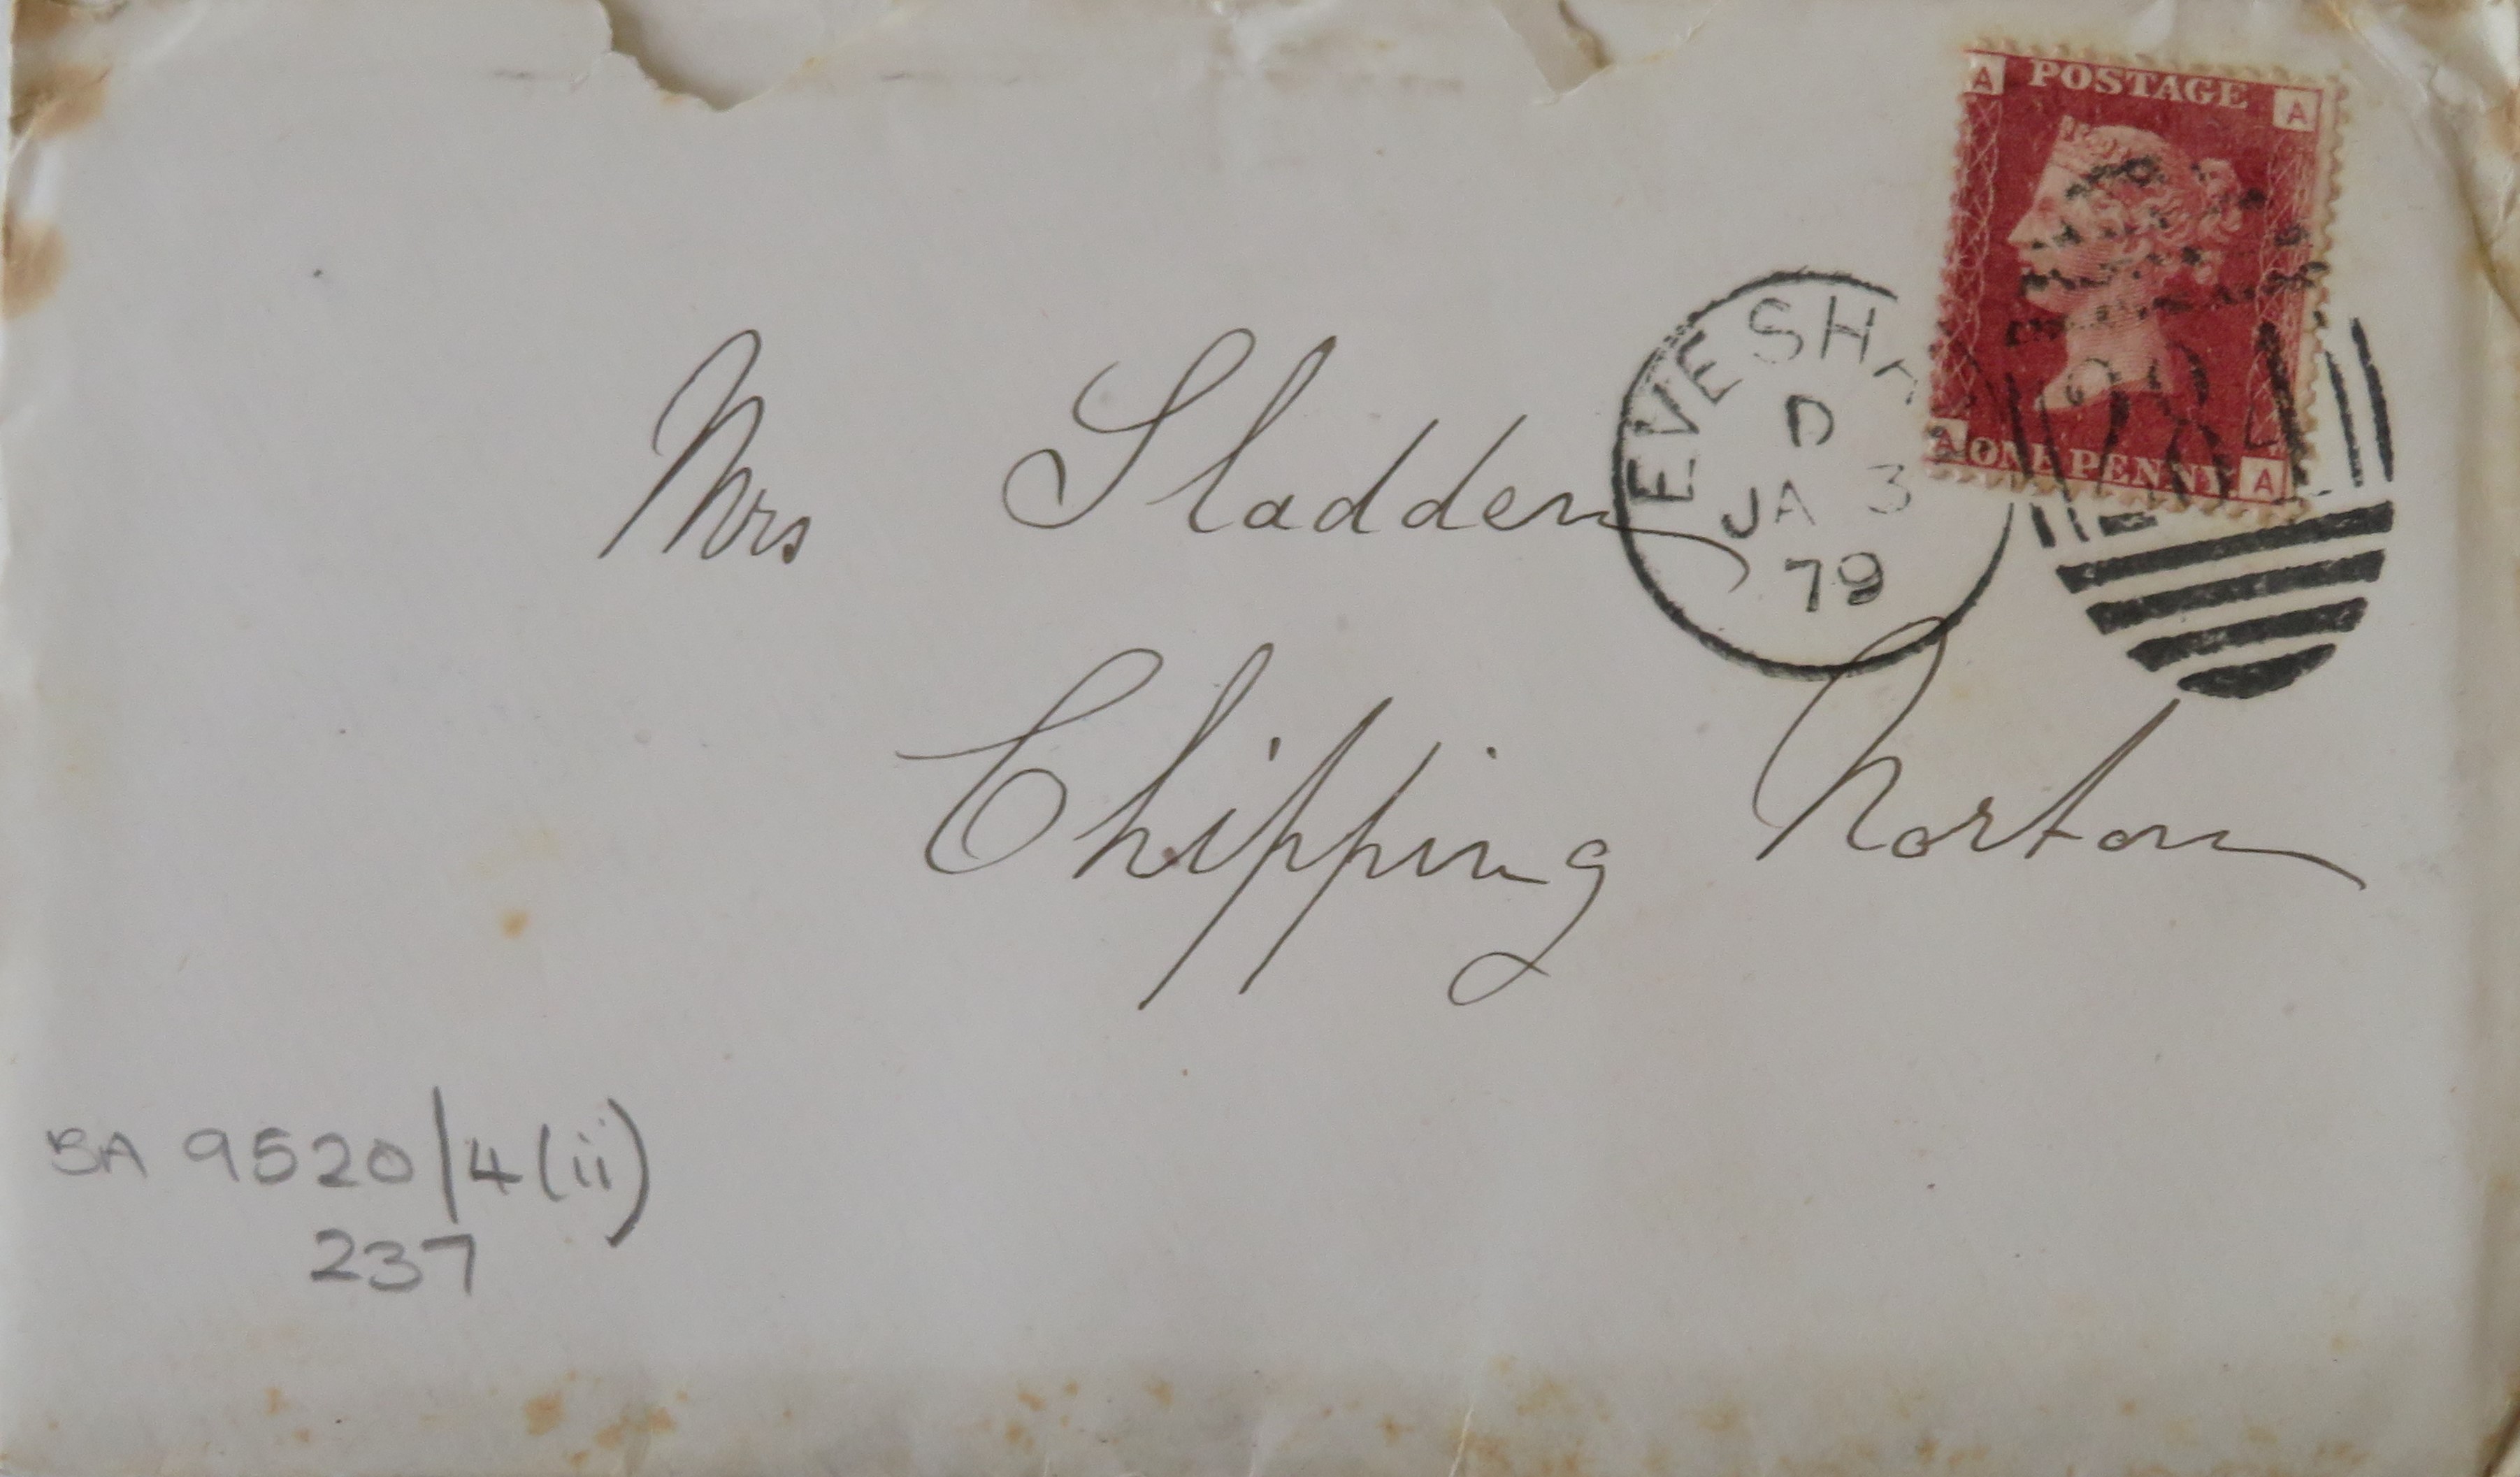 A POSTAGE A
A ONE PENNY A
EVESHA
D
JA 3
79
Mrs Sladden
Chipping Norton
BA 9520/4(ii)
237